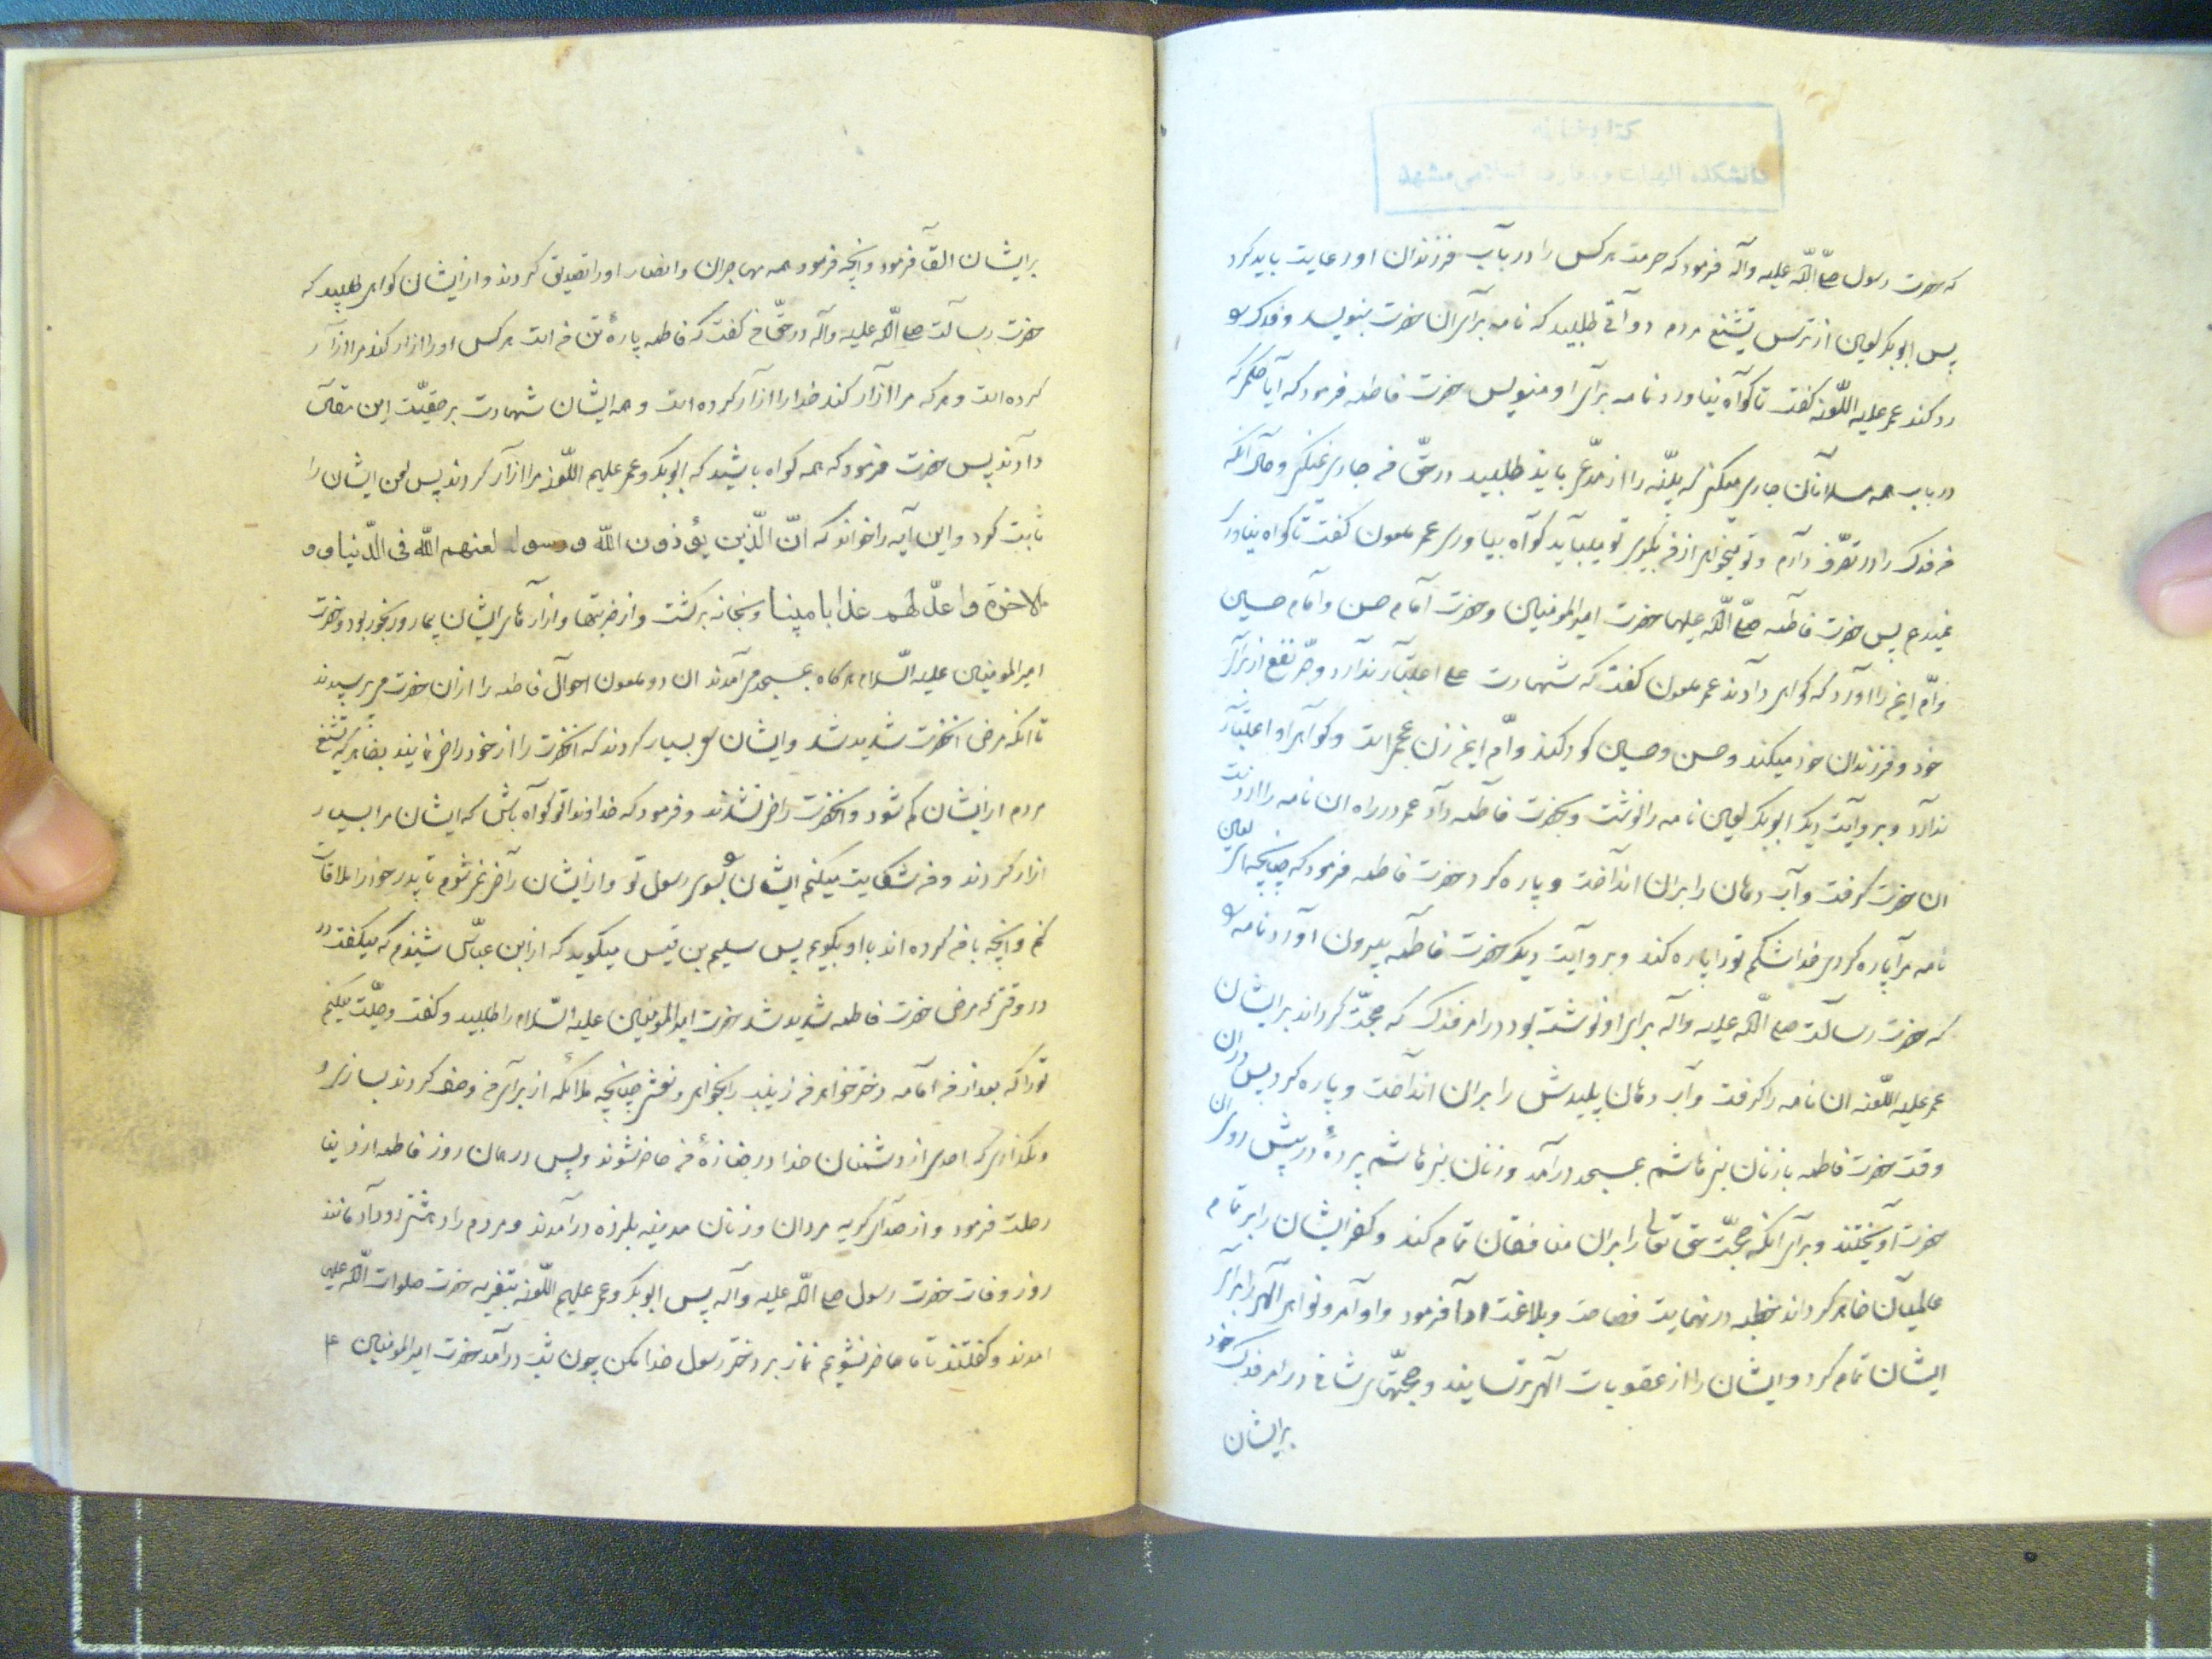 که حضرت رسول صلّی اللّه علیه وآله فرمود که حرمت هرکس را در باب فرزندان او رعایت باید کرد
پس ابوبکر لعین از ترس تشنیع مردم دواتی طلبید که نامه برای آن حضرت بنویسد وفدک را
رد کند عمر علیه اللّعنه گفت تا گواه نیاورد نامه برای او منویس حضرت فاطمه فرمود که آیا حکمی که
در باب همه مسلمانان جاری میکنی که بیّنه را از مدّعی باید طلبید در حقّ من جاری نمیکنی وحال آنکه
من فدک را در تصرّف دارم وتو میخواهی از من بگیری تو میباید گواه بیاوری عمر ملعون گفت تا گواه نیاوری
نمیدهم پس حضرت فاطمه صلّی اللّه علیها حضرت امیرالمومنین وحضرت امام حسن وامام حسین
وامّ ایمن را آورد که گواهی دادند عمر ملعون گفت که شهادت علی اعتبار ندارد وجرّ نفع از برای
خود وفرزندان خود میکند وحسن وحسین کودکند وامّ ایمن زن عجمی است وگواهی او اعتبار
ندارد وبروایت دیگر ابوبکر لعین نامه را نوشت وبحضرت فاطمه داد عمر در راه ان نامه را از دست
ان حضرت گرفت وآب دهان را بران انداخت وپاره کرد حضرت فاطمه فرمود که چنانچه ای لعین
نامه مرا پاره کردی خدا شکم تو را پاره کند وبروایت دیگر حضرت فاطمه بیرون آورد نامه را
که حضرت رسالت صلی اللّه علیه وآله برای او نوشته بود در امر فدک که حجّت گرداند بر ایشان
عمر علیه اللّعنه ان نامه را گرفت وآب دهان پلیدش را بران انداخت وپاره کرد پس دران
وقت حضرت فاطمه با زنان بنی هاشم بمسجد درآمد وزنان بنی هاشم پردهٔ در پیش روی ان
حضرت آویختند وبرای آنکه حجّت حق تعالی را بران منافقان تمام کند وکفر ایشان را بر تمام
عالمیان ظاهر گرداند خطبه در نهایت فصاحت وبلاغت ادا فرمود واوامر ونواهی الهی را برای
ایشان تمام کرد وایشان را از عقوبات الهی ترسانید وحجّتهای شافی در امر فدک خود
برایشان
برایشان القا فرمود وآنچه فرمود همه مهاجران وانصار او را تصدیق کردند واز ایشان گواهی طلبید که
حضرت رسالت صلی اللّه علیه وآله در حقّ من گفت که فاطمه پارهٔ تن من است هرکس او را ازار کند مرا ازار
کرده است وهرکه مرا آزار کند خدا را آزار کرده است وهمه ایشان شهادت بر حقیّت این مقال
دادند پس حضرت فرمود که همه گواه باشید که ابوبکر وعمر علیهم اللّعنه مرا ازار کردند پس لعن ایشان را
ثابت کرد واین آیه را خواند که انّ الّذین یؤذون اللّه ورسوله لعنهم اللّه فی الدّنیا و
الاخرة واعدّ لهم عذابا مهینا وبخانه برگشت واز ضربتها وازارهای ایشان بیمار ورنجور بود وحضرت
امیرالمومنین علیه السّلام هرگاه بمسجد می آمدند ان دو ملعون احوال فاطمه را از ان حضرت می پرسیدند
تا انکه مرض انحضرت شدید شد وایشان سعی بسیار کردند که انحضرت را از خود راضی نمایند بظاهر که تشنیع
مردم از ایشان کم شود وانحضرت راضی نشدند وفرمود که خداوندا تو گواه باش که ایشان مرا بسیار
ازار کردند ومن شکایت میکنم ایشان را بسوی رسول تو واز ایشان راضی نمی شوم تا پدر خود را ملاقات
کنم وآنچه با من کرده اند با او بگویم پس سلیم بن قیس میگوید که از ابن عبّاس شنیدم که میگفت
در وقتی که مرض حضرت فاطمه شدید شد حضرت امیرالمومنین علیه السّلام را طلبید وگفت وصیّت میکنم
تو را که بعد از من امامه دختر خواهر من زینب را بخواهی ونعشی چنانچه ملائکه از برای من وصف کردند بسازی و
ونگذاری که احدی از دشمنان خدا در جنازهٔ من حاضر شوند وپس در همان روز فاطمه از دنیا
رحلت فرمود واز صدای گریه مردان وزنان مدینه بلرزه درآمدند ومردم را دهشتی رو داد مانند
روز وفات حضرت رسول صلی اللّه علیه وآله پس ابوبکر وعمر علیهم اللّعنه بتعزیه حضرت صلوات اللّه علیه
امدند وگفتند تا ما حاضر نشویم نماز بر دختر رسول خدا مکن چون شب درآمد حضرت امیرالمومنین ع